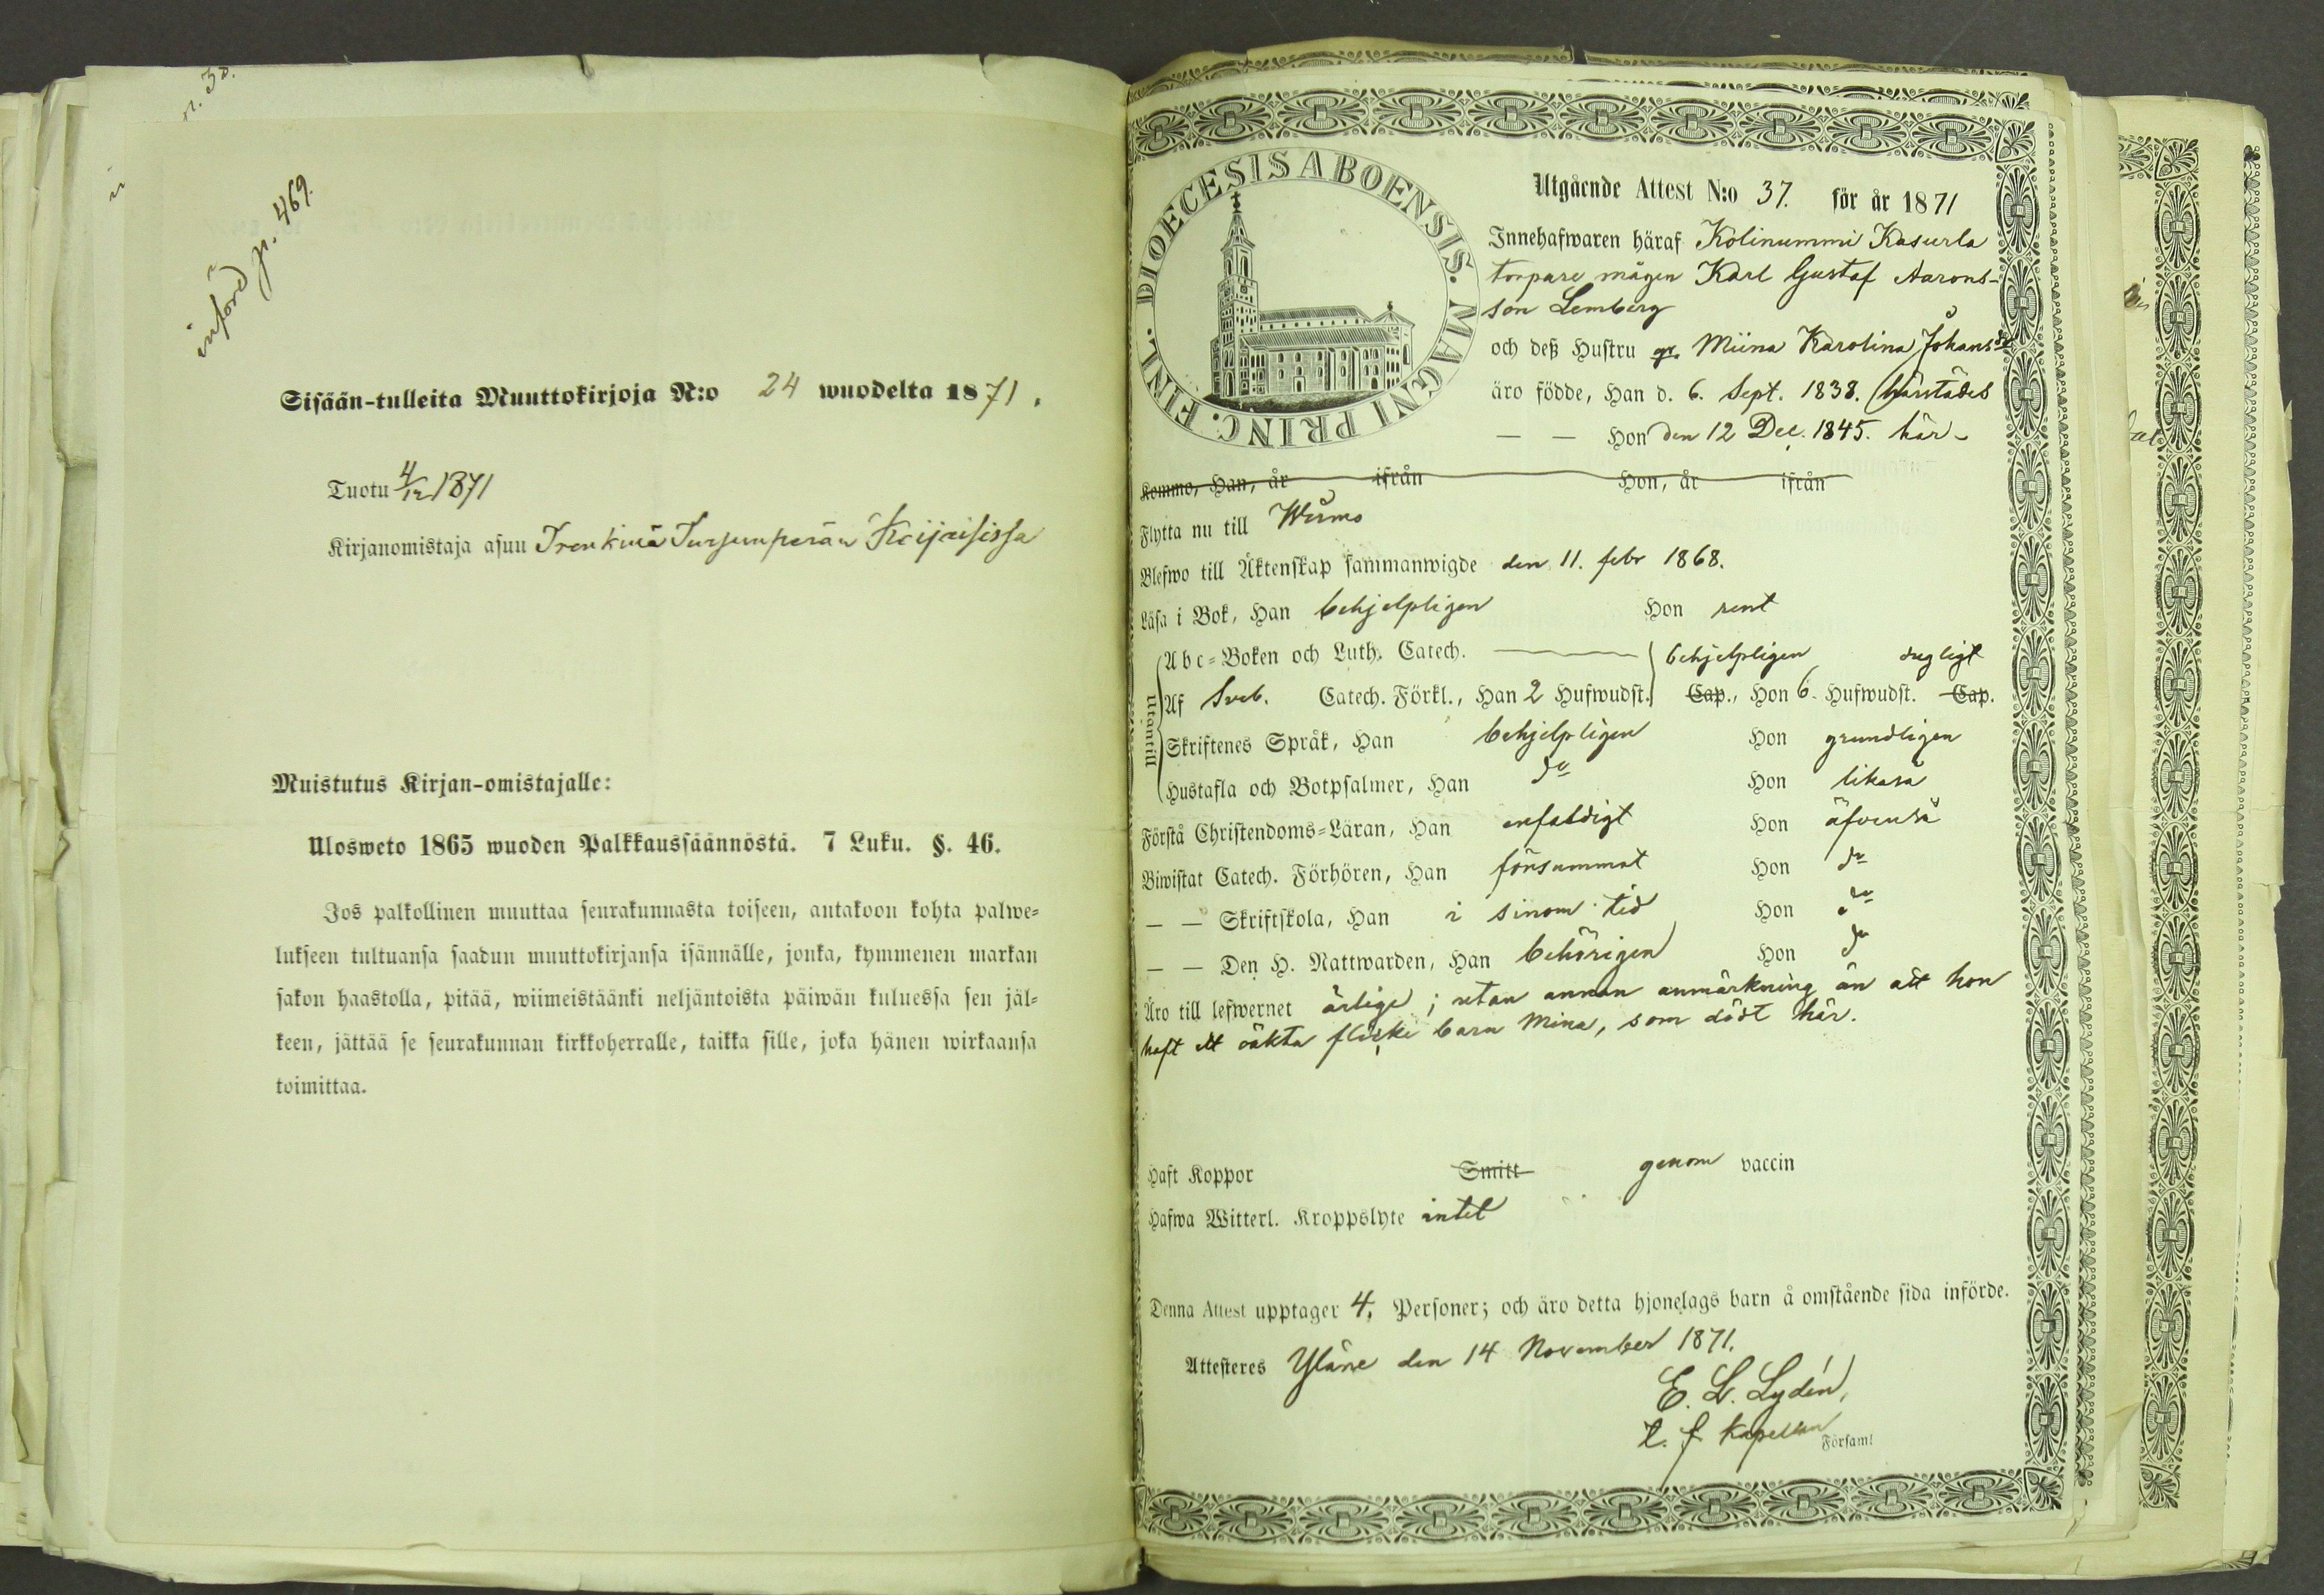 n. 30.
införd p. 469.
Sisään-tulleita Muuttokirjoja N:o 24 wuodelta 1871.
Tuotu 4/12 1871
Kirjanomistaja asuu
Muistutus Kirjan-omistajalle:
Ulosweto 1865 wuoden Palkkaussäännöstä. 7 Luku. §. 46.
Jos palkollinen muuttaa seurakunnasta toiseen, antakoon kohta palwe-
lukseen tultuansa saadun muuttokirjansa isännälle, jonka, kymmenen markan
sakon haastolla, pitää, wiimeistäänki neljäntoista päiwän kuluessa sen jäl-
keen, jättää se seurakunnan kirkkoherralle, taikka sille, joka hänen wirkaansa
toimittaa.
DIOECESIS ABOENSIS. MAGNI PRINC. FINL.
Utgående Attest N:o 37. för år 1871
Innehafwaren häraf Kolinummi Kasurla
torpare mågen Karl Gustaf Aarons-
son Lemberg
och deß Hustru Miina Karolina Johansdr
äro födde, Han d. 6. Sept. 1838. härstädes
— — Hon den 12 Dec. 1845. här-
Kommo, Han, år ifrån Hon, år ifrån
Flytta nu till Wirmo
Blefwo till Äktenskap sammanwigde den 11. febr 1868.
Läsa i Bok, Han behjelpligen Hon rent
Utantill
Abc-Boken och Luth. Catech. behjelpligen dugligt
Af Sveb. Catech. Förkl., Han 2 Hufwudst. Cap., Hon 6 Hufwudst. Cap.
Skriftenes Språk, Han behjelpligen Hon grundligen
Hustafla och Botpsalmer, Han do Hon likaså
Förstå Christendoms-Läran, Han enfaldigt Hon äfvenså
Biwistat Catech. Förhören, Han försummat Hon do
— — Skriftskola, Han i sinom tid Hon do
— — Den H. Nattwarden, Han behörigen Hon do
Äro till lefwernet ärlige; utan annan anmärkning än att hon
haft ett oäkta flicke barn Mina, som dödt här.
Haft Koppor Smitt genom vaccin
Hafwa Witterl. Kroppslyte intet
Denna Attest upptager 4. Personer; och äro detta hjonelags barn å omstående sida införde.
Attesteres Yläne den 14 November 1871.
E. L. Lydén,
t. f. Kapellan
Församl